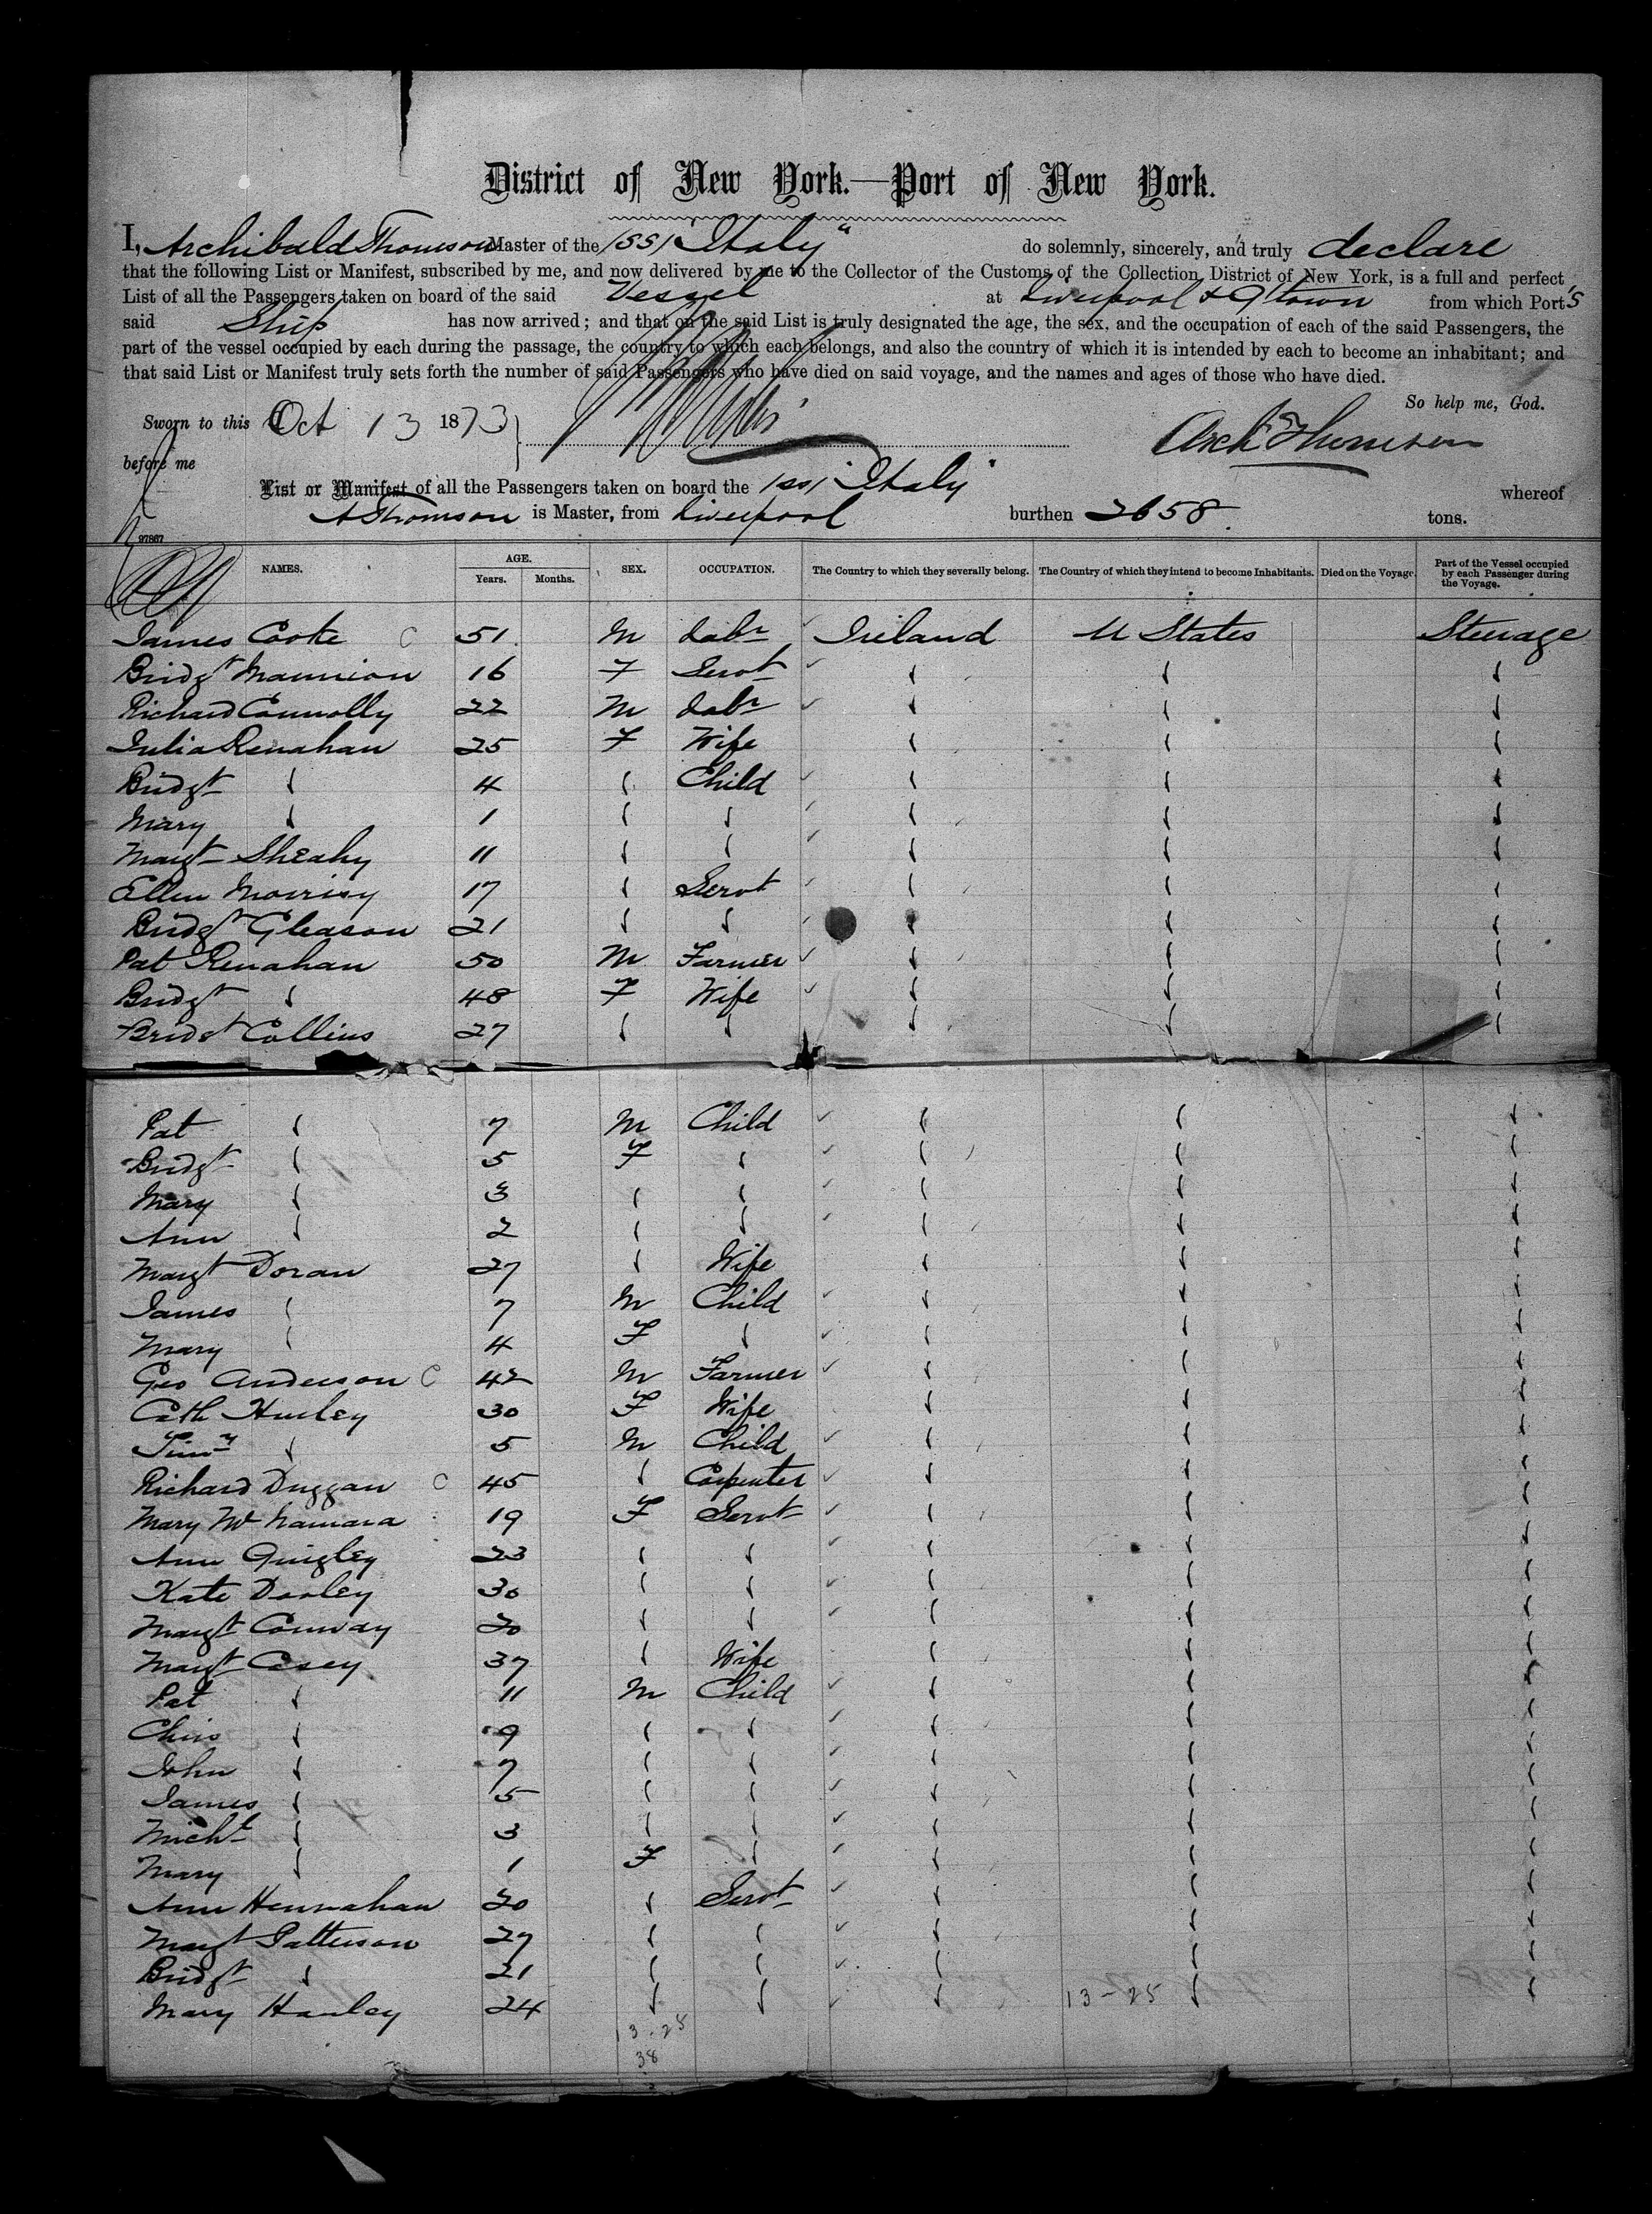 District of New York.—Port of New York.
I, Archibald Thomson Master of the (SS) "Italy" do solemnly, sincerely, and truly declare
that the following List or Manifest, subscribed by me, and now delivered by me to the Collector of the Customs of the Collection District of New York, is a full and perfect
List of all the Passengers taken on board of the said Vessel at Liverpool & Qtown from which Port's
said Ship has now arrived; and that on the said List is truly designated the age, the sex, and the occupation of each of the said Passengers, the
part of the vessel occupied by each during the passage, the country to which each belongs, and also the country of which it is intended by each to become an inhabitant; and
that said List or Manifest truly sets forth the number of said Passengers who have died on said voyage, and the names and ages of those who have died.
So help me, God.
Sworn to this Oct 13 1873
Arch Thomson
before me
List or Manifest of all the Passengers taken on board the (SS) "Italy" whereof
A Thomson is Master, from Liverpool burthen 2658. tons.
97867
NAMES. AGE. Years. Months. SEX. OCCUPATION. The Country to which they severally belong. The Country of which they intend to become Inhabitants. Died on the Voyage. Part of the Vessel occupied by each Passenger during the Voyage.
James Cooke C 51 M Labr Ireland U States Steerage
Bridgt Mannion 16 F Servt
Richard Connolly 22 M Labr
Julia Renahan 25 F Wife
Bridgt 4 Child
Mary 1
Margt Sheahy 11
Ellen Morrisy 17 Servt
Bridgt Gleason 21
Pat Renahan 50 M Farmer
Bridgt 48 F Wife
Bridgt Collins 27
Pat 7 M Child
Bridgt 5 F
Mary 3
Ann 2
Margt Doran 27 Wife
James 7 M Child
Mary 4 F
Geo Anderson C 42 M Farmer
Cath Hurley 30 F Wife
Timy 5 M Child
Richard Duggan C 45 Carpenter
Mary McNamara 19 F Servt
Ann Quigley 23
Kate Dooley 30
Margt Conway 20
Margt Casey 37 Wife
Pat 11 M Child
Chris 9
John 7
James 5
Michl 3
Mary 1 F
Ann Hennahan 20 Servt
Margt Patterson 27
Bridgt 21
Mary Hanley 24 13-25
13-25
38